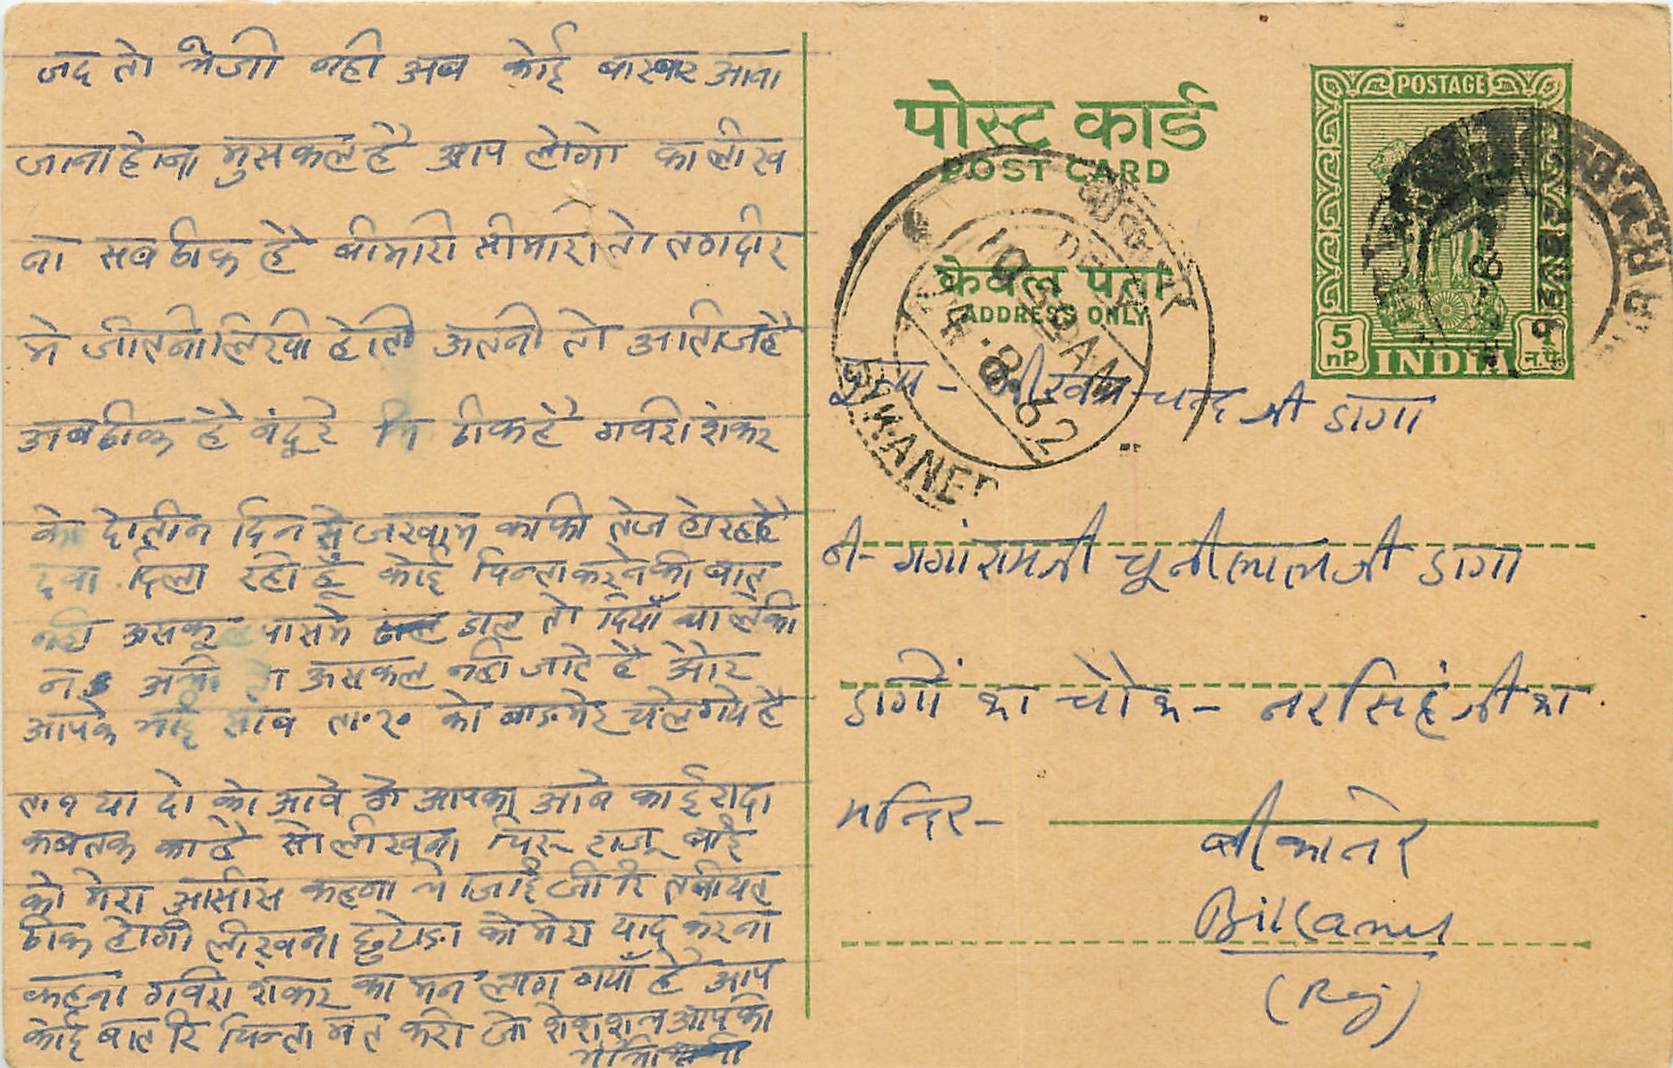 जद तो भेजी नही अब कोई बारबार आना
जाना होना मुसकल है आप लोगो का लीख
ना सब ठीक है बीमारी सीमारी तो तगदीर
मे जीतनी लिखी होती अतनी तो आतिज है
अब ठीक है ठीक है गवरी शंकर
के दो तीन दिन से जुखाम काफी तेज हो रहा है
दवा दिला रही हूँ कोई चिन्ता करने की बात
नही पासमे डाल तो दियाँ था लेकी
न असकुल नही जाते है और
आपके भाई साब ता॰२॰ को बाडमेर चले गये है
ता १ या दो को आवे गे आपका आने का ईरादा
कबतक का है सो लीखना राजू बाई
को मेरा आसीस कहना भोजाई जी रि तबीयत
ठीक होगी लीखना को मेरा याद करना
कहना गवरी शंकर का मन लाग गयाँ है आप
कोई बात रि चिन्ता मत करो आपकी
पोस्ट कार्ड
POST CARD
केवल पता
ADDRESS ONLY
POSTAGE
5 nP INDIA न.प.
BIKANER
10-30AM
4.8.62
चन्द जी डागा
गंगारामजी चूनीलालजी डागा
डागों का चौक - नरसिंह जी का
मन्दिर -
बीकानेर
Bikaner
(Raj)